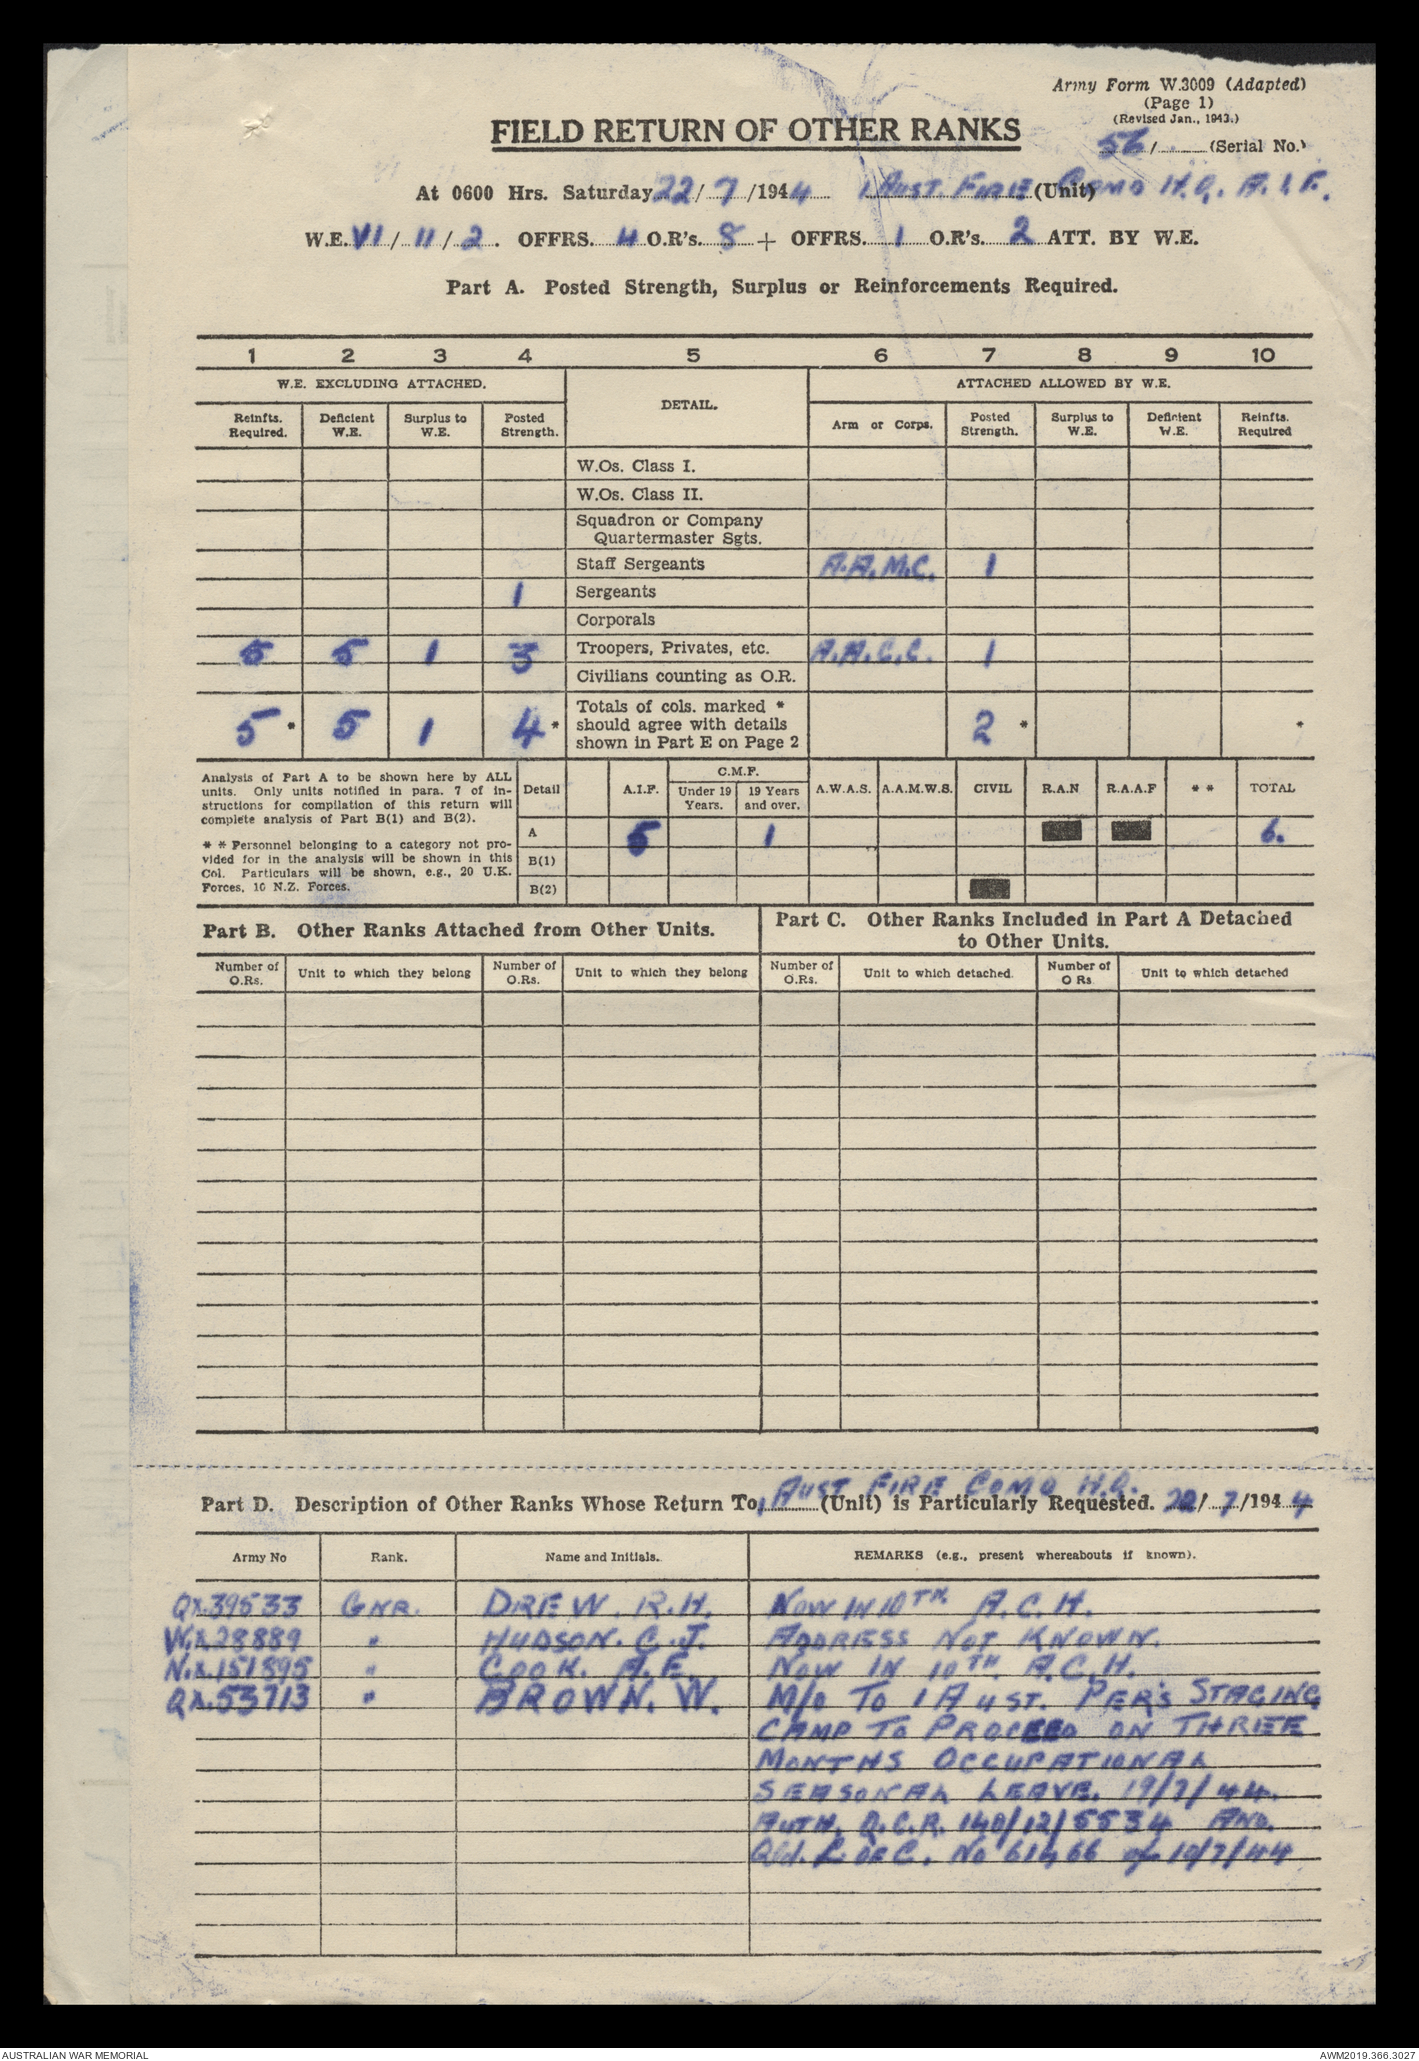 Army Form W.3009 (Adapted)
(Page 1)
(Revised Jan., 1943.)
FIELD RETURN OF OTHER RANKS
56/ (Serial No.)
At 0600 Hrs. Saturday 22/7/1944 1 AUST. FIRE COMD H.Q. A.I.F. (Unit)
W.E. VI/11/2. OFFRS. 4 O.R's. 8 + OFFRS. 1 O.R's. 2 ATT. BY W.E.
Part A. Posted Strength, Surplus or Reinforcements Required.
1 2 3 4 5 6 7 8 9 10
W.E. EXCLUDING ATTACHED. DETAIL. ATTACHED ALLOWED BY W.E.
Reinfts. Required. Deficient W.E. Surplus to W.E. Posted Strength. Arm or Corps. Posted Strength. Surplus to W.E. Deficient W.E. Reinfts. Required
W.Os. Class I.
W.Os. Class II.
Squadron or Company
Quartermaster Sgts.
Staff Sergeants A.A.M.C. 1
1 Sergeants
Corporals
5 5 1 3 Troopers, Privates, etc. A.A.C.C. 1
Civilians counting as O.R.
Totals of cols. marked *
5* 5 1 4* should agree with details 2* *
shown in Part E on Page 2
Analysis of Part A to be shown here by ALL
units. Only units notified in para. 7 of in-
structions for compilation of this return will
complete analysis of Part B(1) and B(2).
** Personnel belonging to a category not pro-
vided for in the analysis will be shown in this
Col. Particulars will be shown, e.g., 20 U.K.
Forces, 10 N.Z. Forces.
Detail A.I.F. C.M.F. Under 19 Years. 19 Years and over. A.W.A.S. A.A.M.W.S. CIVIL R.A.N R.A.A.F ** TOTAL
A 5 1 6.
B(1)
B(2)
Part B. Other Ranks Attached from Other Units.
Part C. Other Ranks Included in Part A Detached
to Other Units.
Number of O.Rs. Unit to which they belong Number of O.Rs. Unit to which they belong Number of O.Rs. Unit to which detached. Number of O Rs Unit to which detached
Part D. Description of Other Ranks Whose Return To 1 AUST FIRE COMD H.Q. (Unit) is Particularly Requested. 22/7/1944
Army No Rank. Name and Initials. REMARKS (e.g., present whereabouts if known).
QX.39533 GNR. DREW. R.H. NOW IN 10TH A.C.H.
W.X.28889 " HUDSON. C.J. ADDRESS NOT KNOWN.
N.X.151895 " COOK. A.E. NOW IN 10TH A.C.H.
QX.53713 " BROWN. W. M/O TO 1 AUST. PERS STAGING
CAMP TO PROCEED ON THREE
MONTHS OCCUPATIONAL
SEASONAL LEAVE. 19/7/44.
AUTH. Q.C.R. 140/12/5534 AND.
Qld. L OF C. No 61466 of 10/7/44
AUSTRALIAN WAR MEMORIAL
AWM2019.366.3027